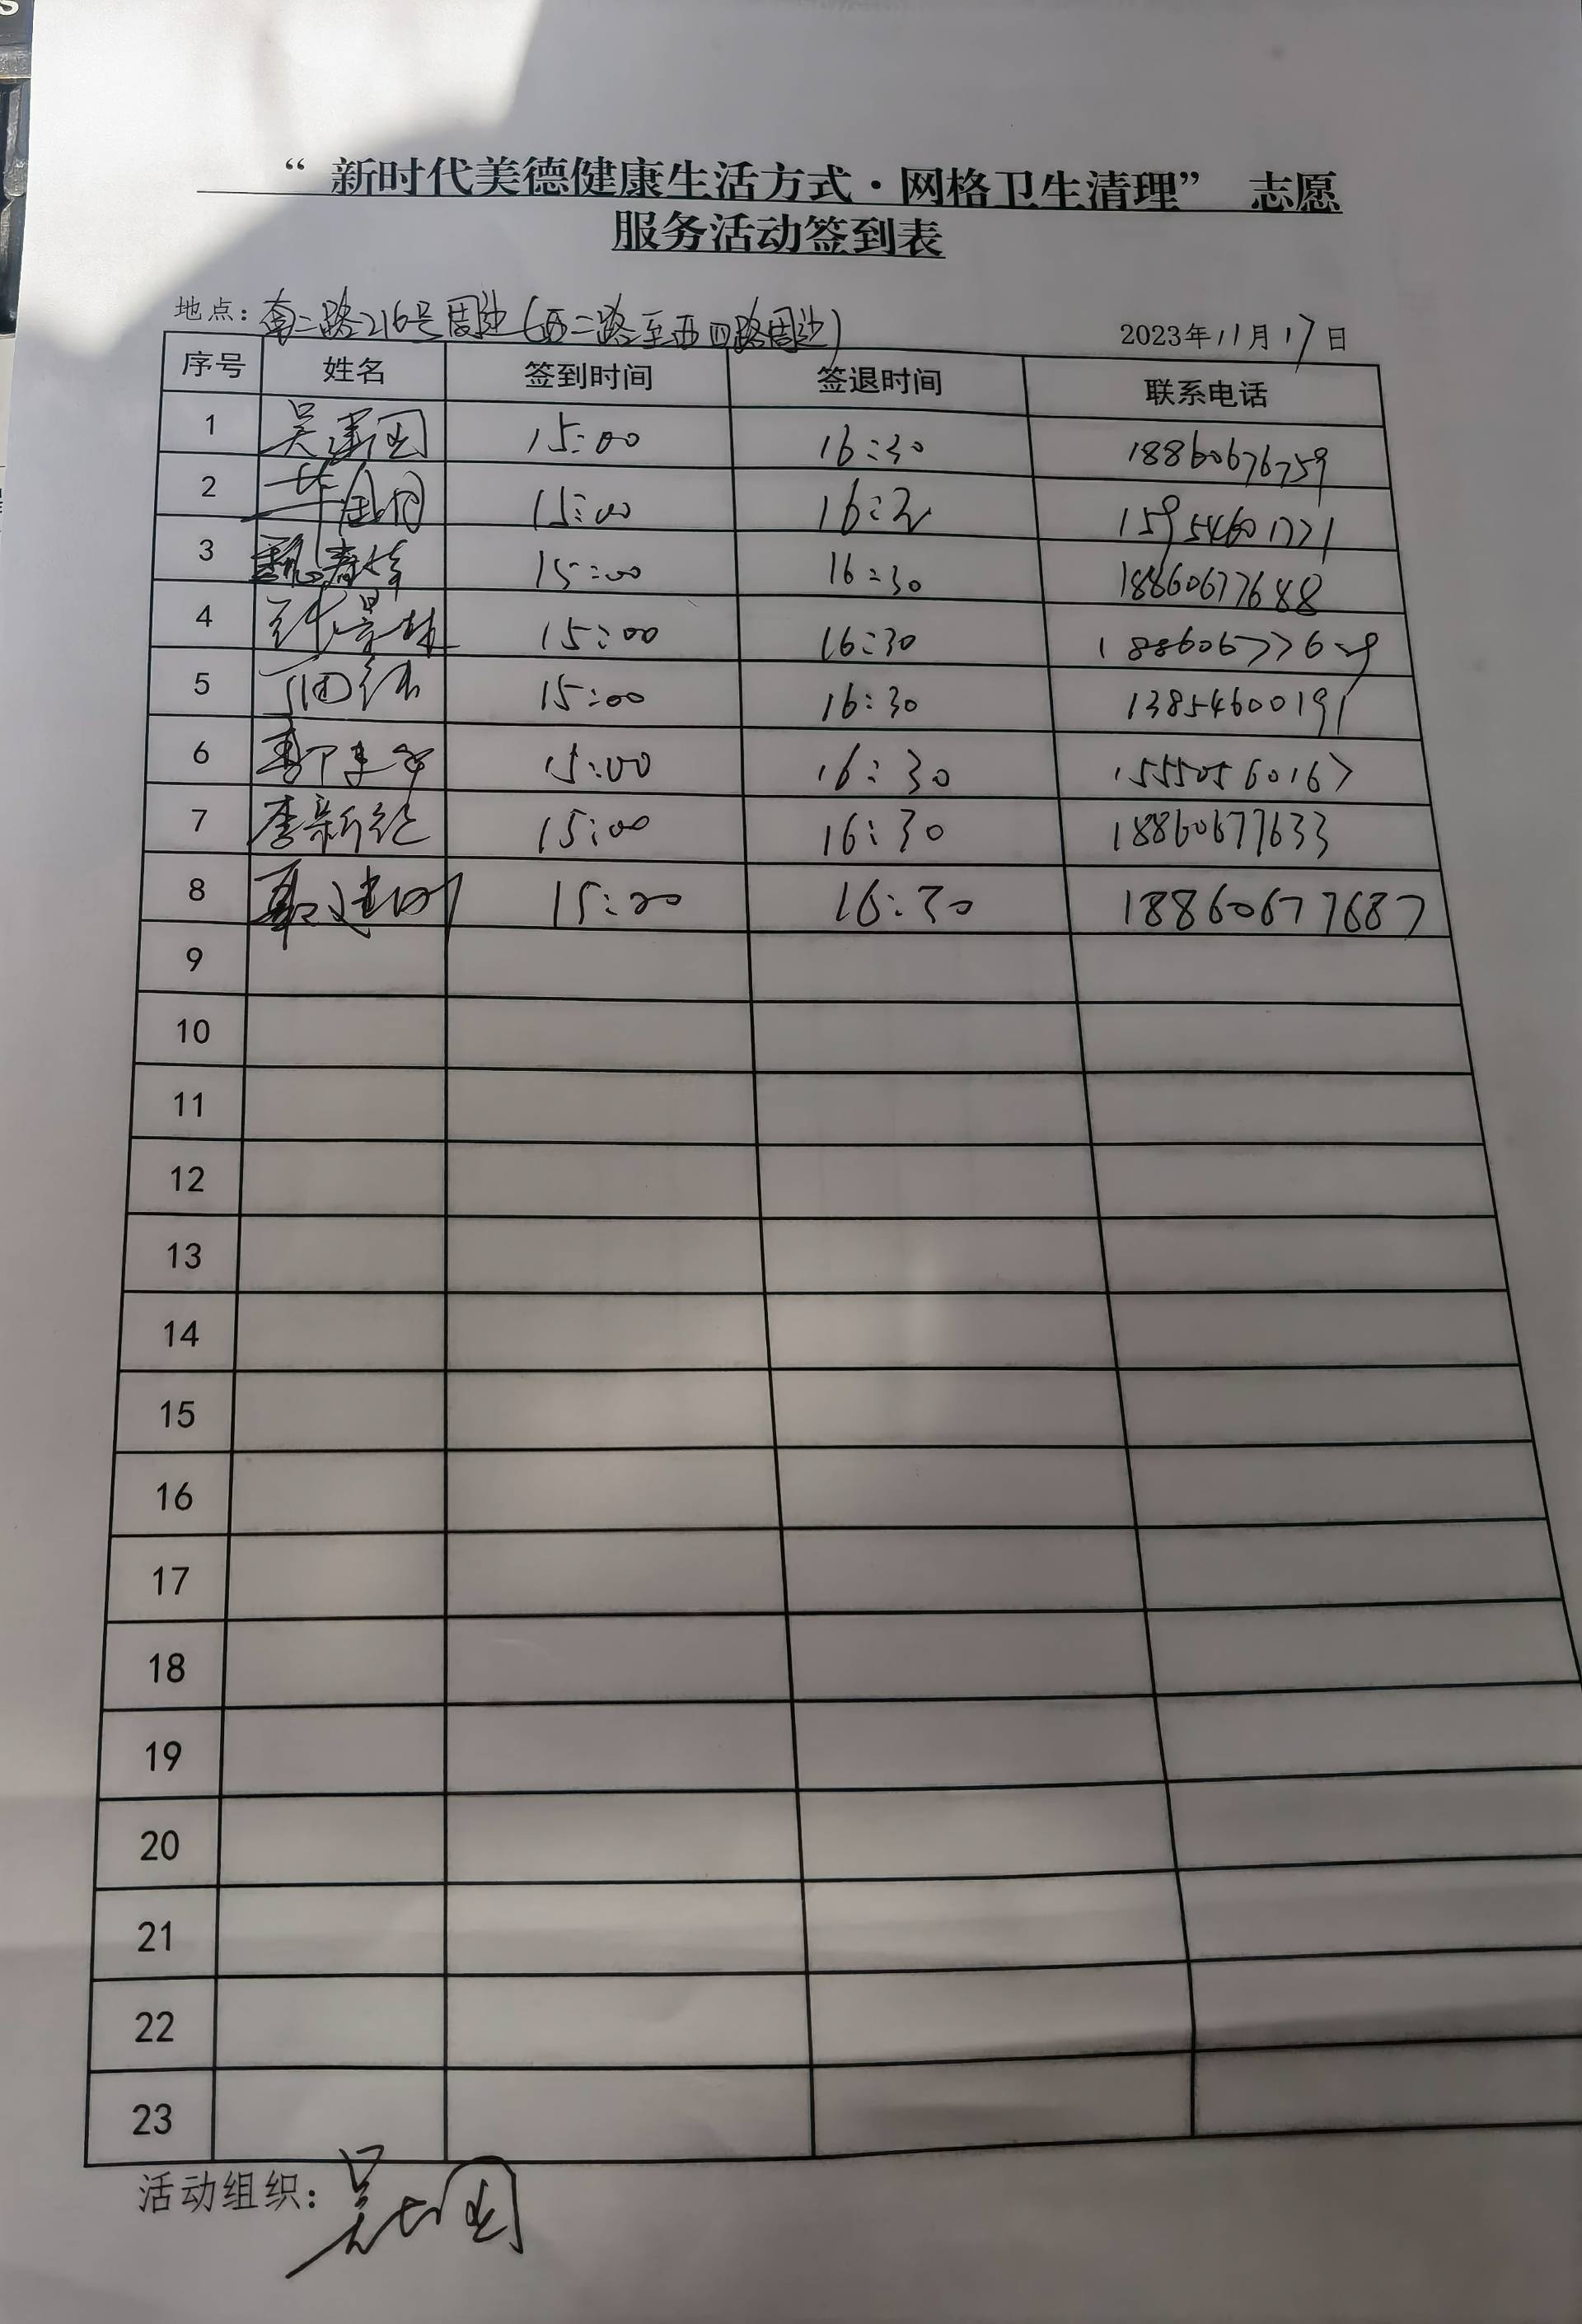 “新时代美德健康生活方式·网格卫生清理” 志愿
服务活动签到表
地点：南二路216号周边(西二路至西四路周边) 2023年11月17日
序号 姓名 签到时间 签退时间 联系电话
1 吴建国 15:00 16:30 18860676759
2 15:00 16:30 15954601771
3 15:00 16:30 18860677688
4 15:00 16:30
5 15:00 16:30 13854600191
6 15:00 16:30 15550560167
7 李新纪 15:00 16:30 18860677633
8 15:00 16:30 18860677687
9
10
11
12
13
14
15
16
17
18
19
20
21
22
23
活动组织：吴建国